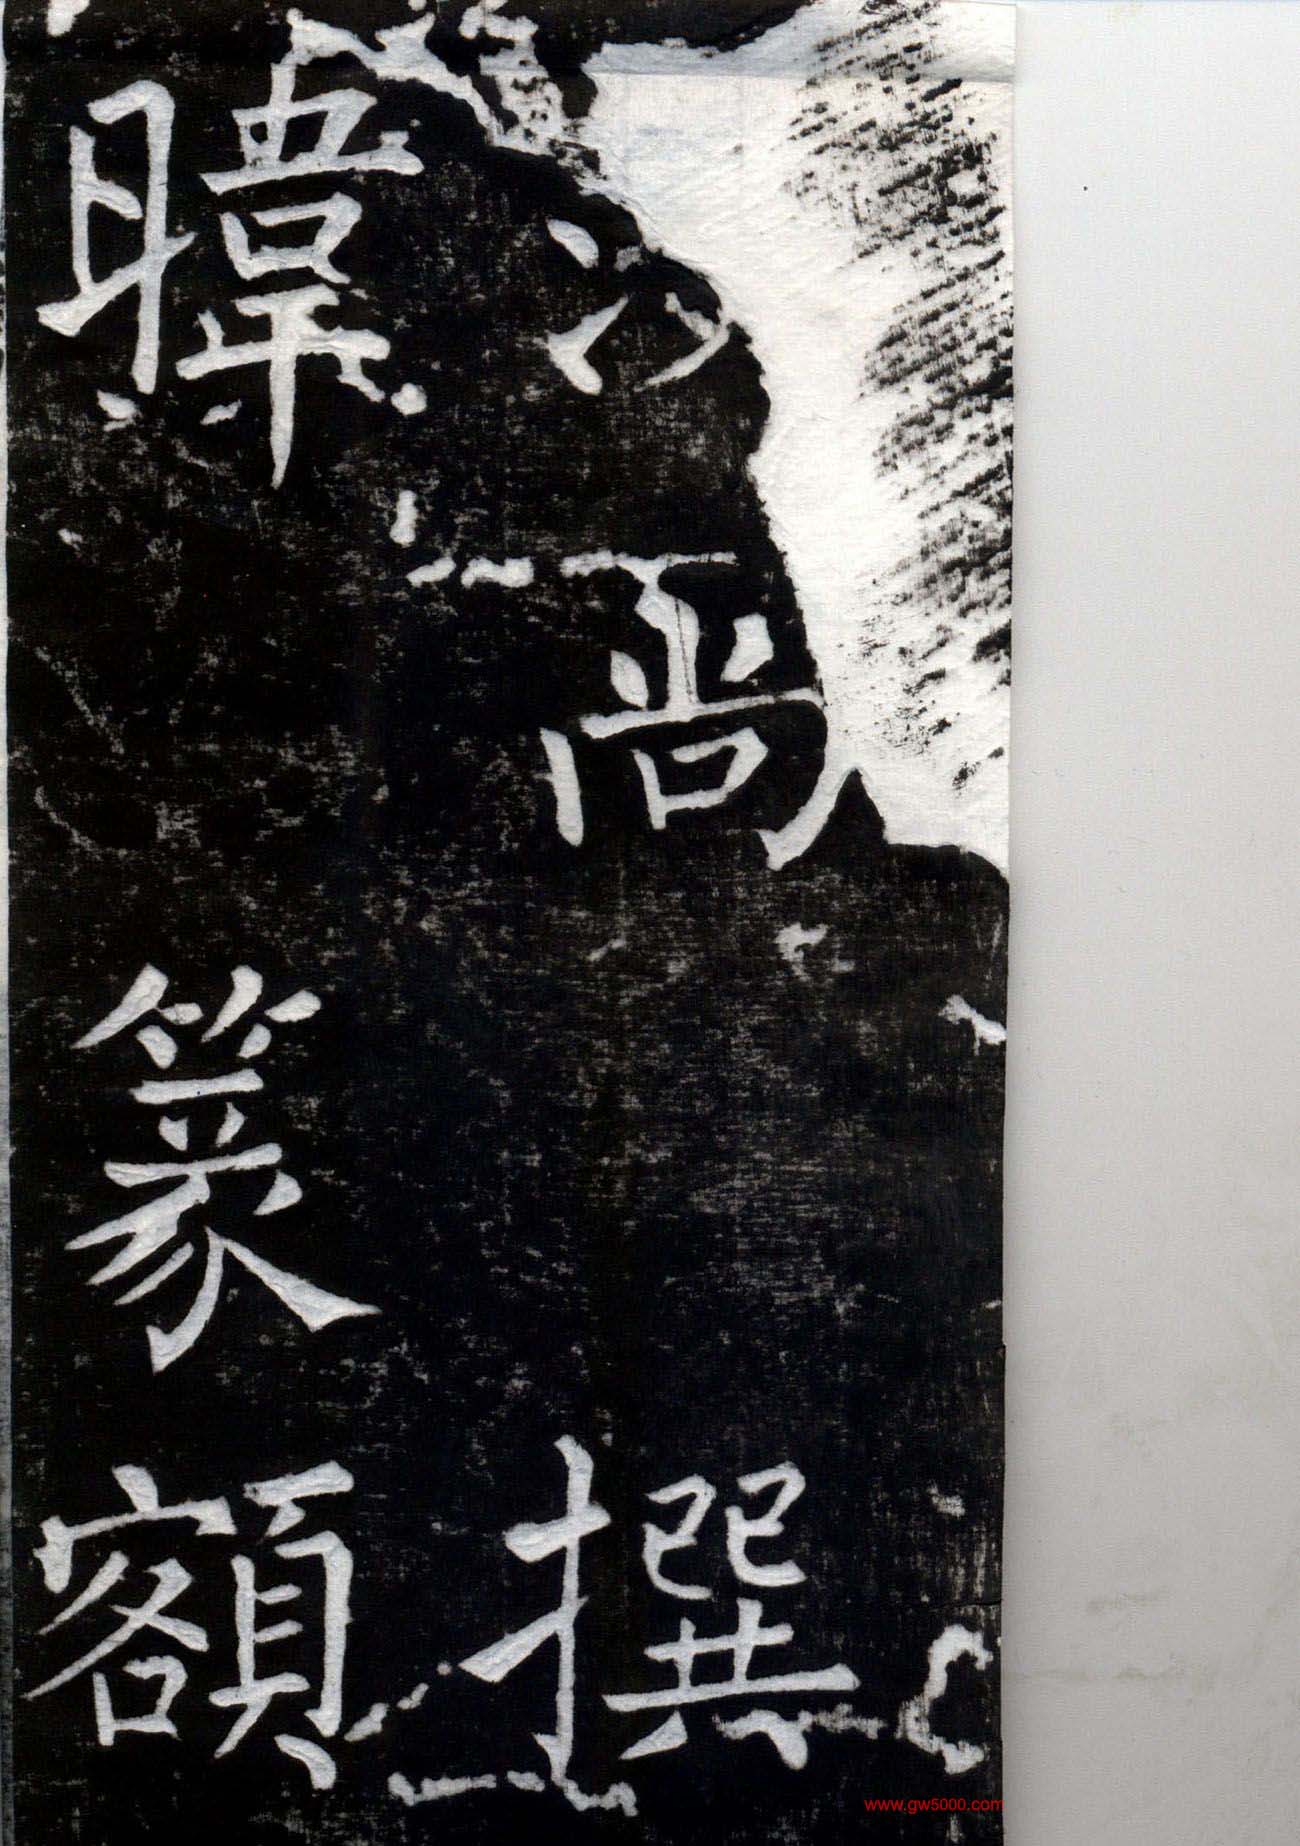 尚撰
暐篆額
www.gw5000.com